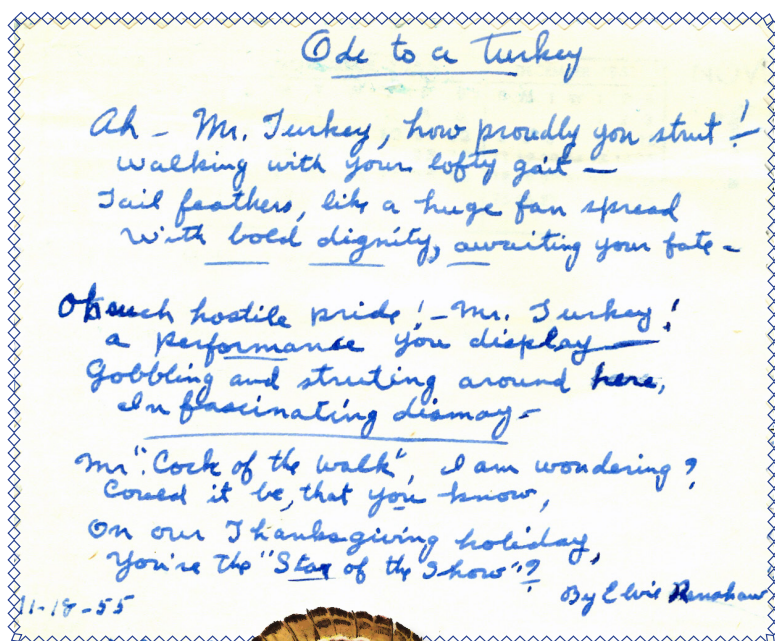 Ode to a Turkey
Ah - Mr. Turkey, how proudly you strut!
Walking with your lofty gait —
Tail feathers, like a huge fan spread
With bold dignity, awaiting your fate -
Oh such hostile pride! - Mr. Turkey!
a performance you display —
Gobbling and struting around here,
In fascinating dismay -
Mr. "Cock of the walk", I am wondering?
Could it be, that you know,
On our Thanksgiving holiday,
You're the "Star of the Show"?
By Elvie Renshaw
11-18-55